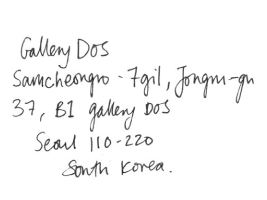 Gallery DOS
Samcheongro - 7gil, Jongru-gu
37, B1 gallery DOS
Seoul 110-220
South Korea.